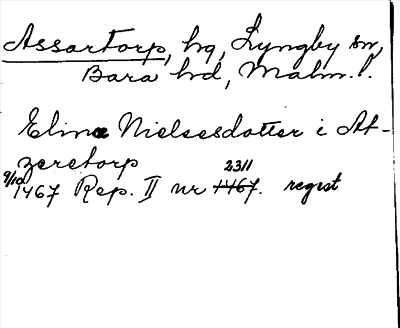 Assartorp, hg, Lyngby sn,
Bara hd, Malm. l.
Elinæ Nielsesdotter i At-
zeretorp
9/10 1467 Rep. II nr 1467. 2311 regist